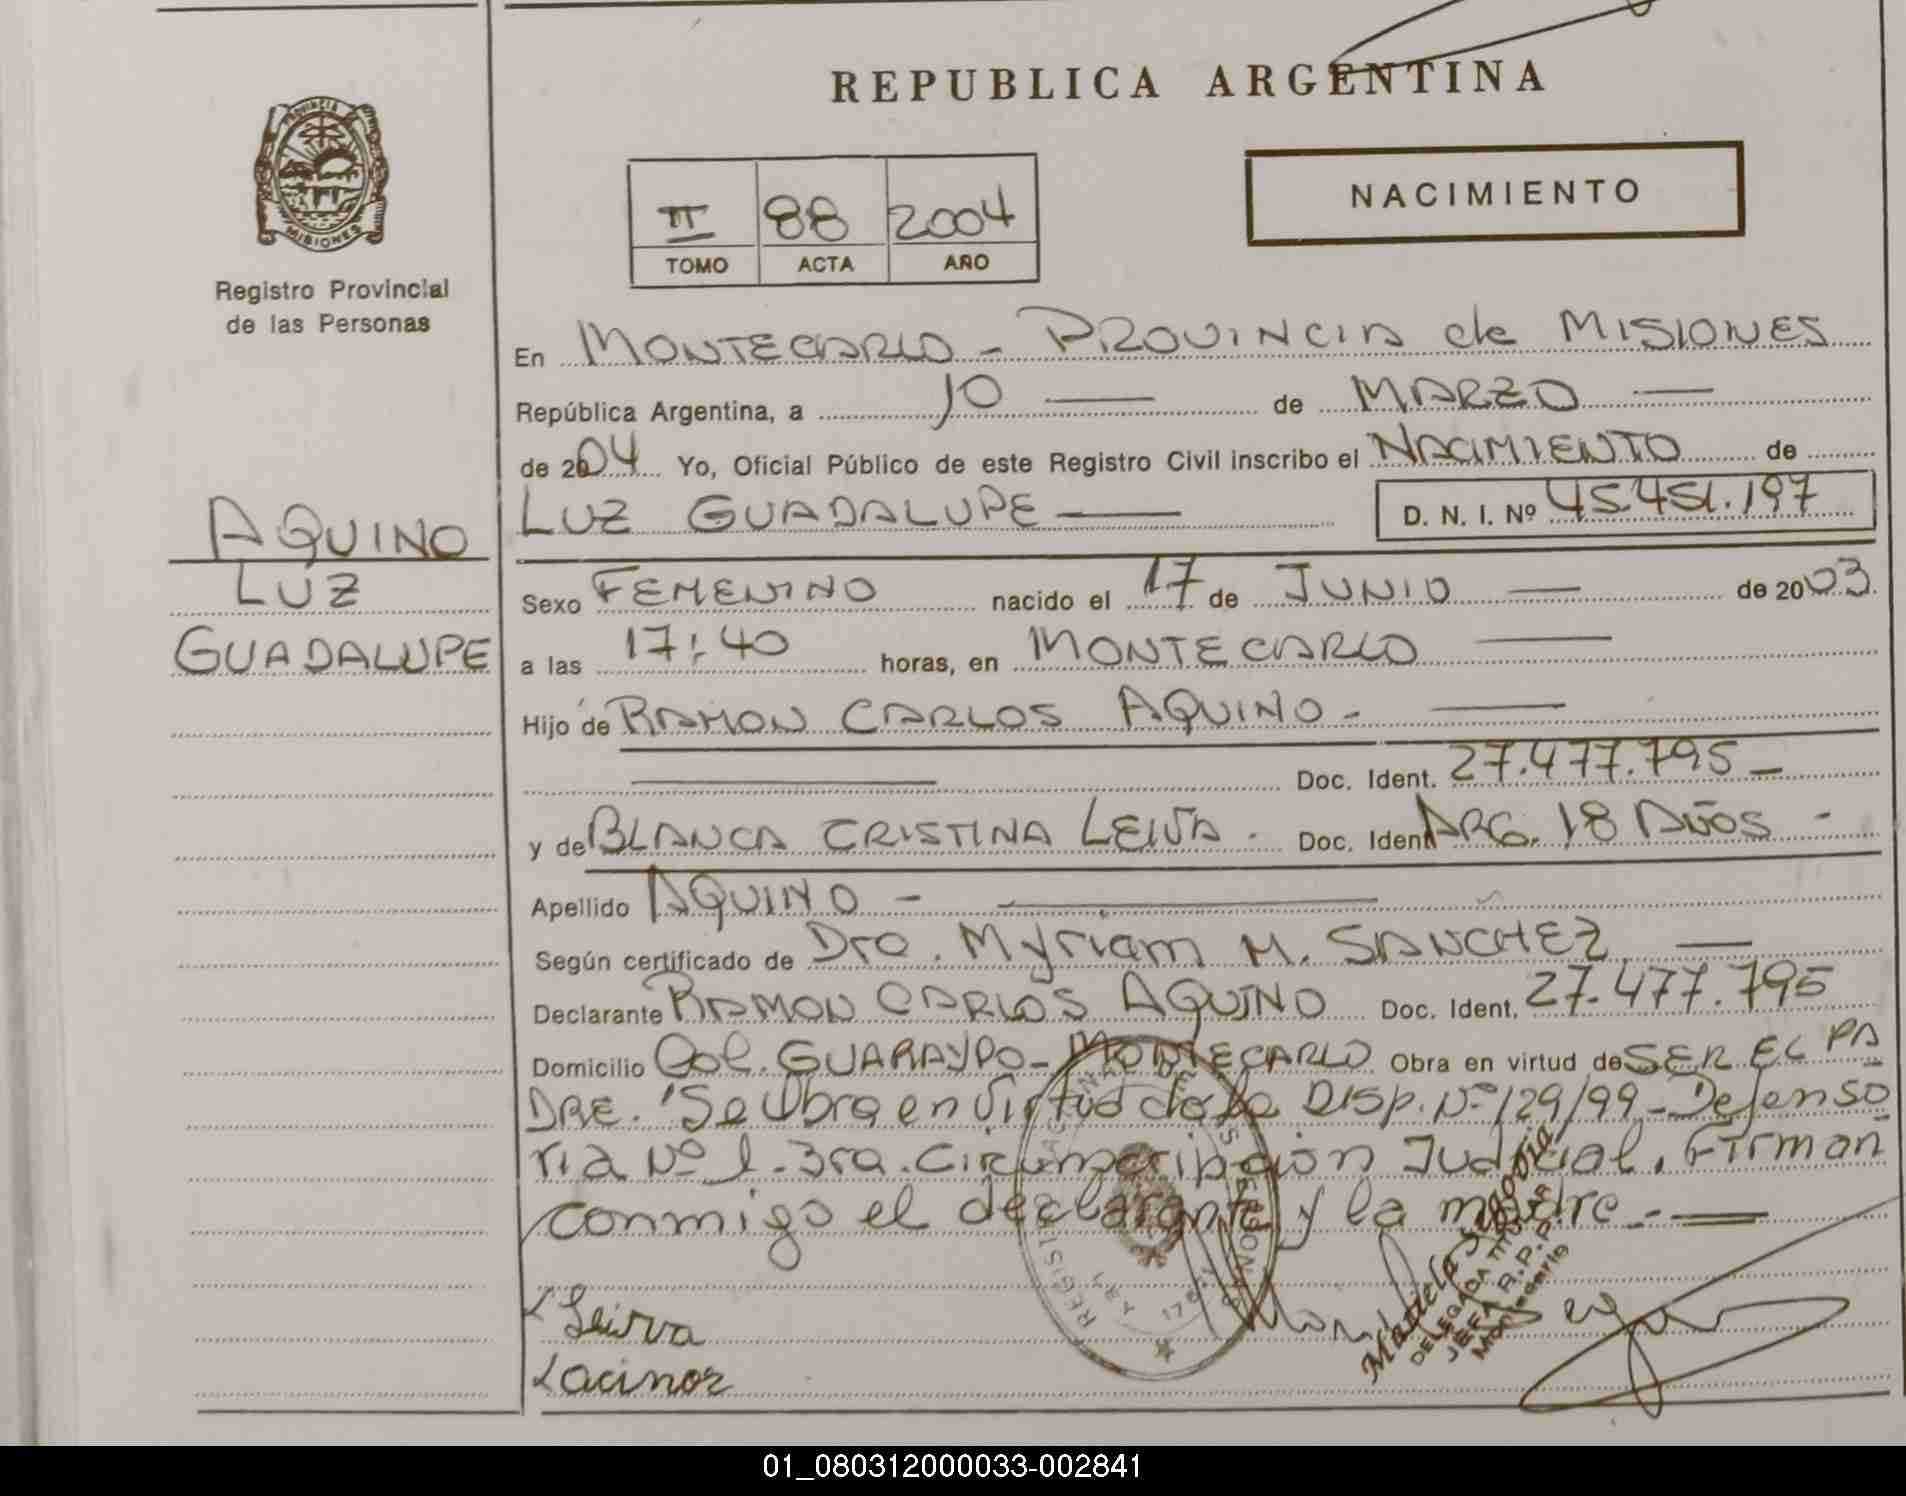 REPUBLICA ARGENTINA
PROVINCIA
MISIONES
Registro Provincial
de las Personas
II 88 2004
TOMO ACTA AÑO
NACIMIENTO
En MONTECARLO - PROVINCIA de MISIONES
República Argentina, a 10 — de MARZO —
de 2004 Yo, Oficial Público de este Registro Civil inscribo el NACIMIENTO de
LUZ GUADALUPE — D. N. I. Nº 45.451.197
AQUINO
LUZ
GUADALUPE
Sexo FEMENINO nacido el 17 de JUNIO — de 2003
a las 17:40 horas, en MONTECARLO —
Hijo de RAMON CARLOS AQUINO - —
— Doc. Ident. 27.477.795 -
y de BLANCA CRISTINA LEIVA. Doc. Ident ARG. 18 AÑOS -
Apellido AQUINO - —
Según certificado de Dra. Myriam M. SANCHEZ —
Declarante RAMON CARLOS AQUINO Doc. Ident. 27.477.795
Domicilio Col. GUARAYPO - MONTECARLO Obra en virtud de SER EL PA
DRE. "Se Obra en Virtud de la DISP. Nº 129/99 - Defenso
ria Nº 1 - 3ra. Circunscripción Judicial. Firman
conmigo el declarante y la madre. - —
Leirva
Mariela Segovia
DELEGADA TITULAR
JEFA R.P.P.
Montecarlo
01_080312000033-002841